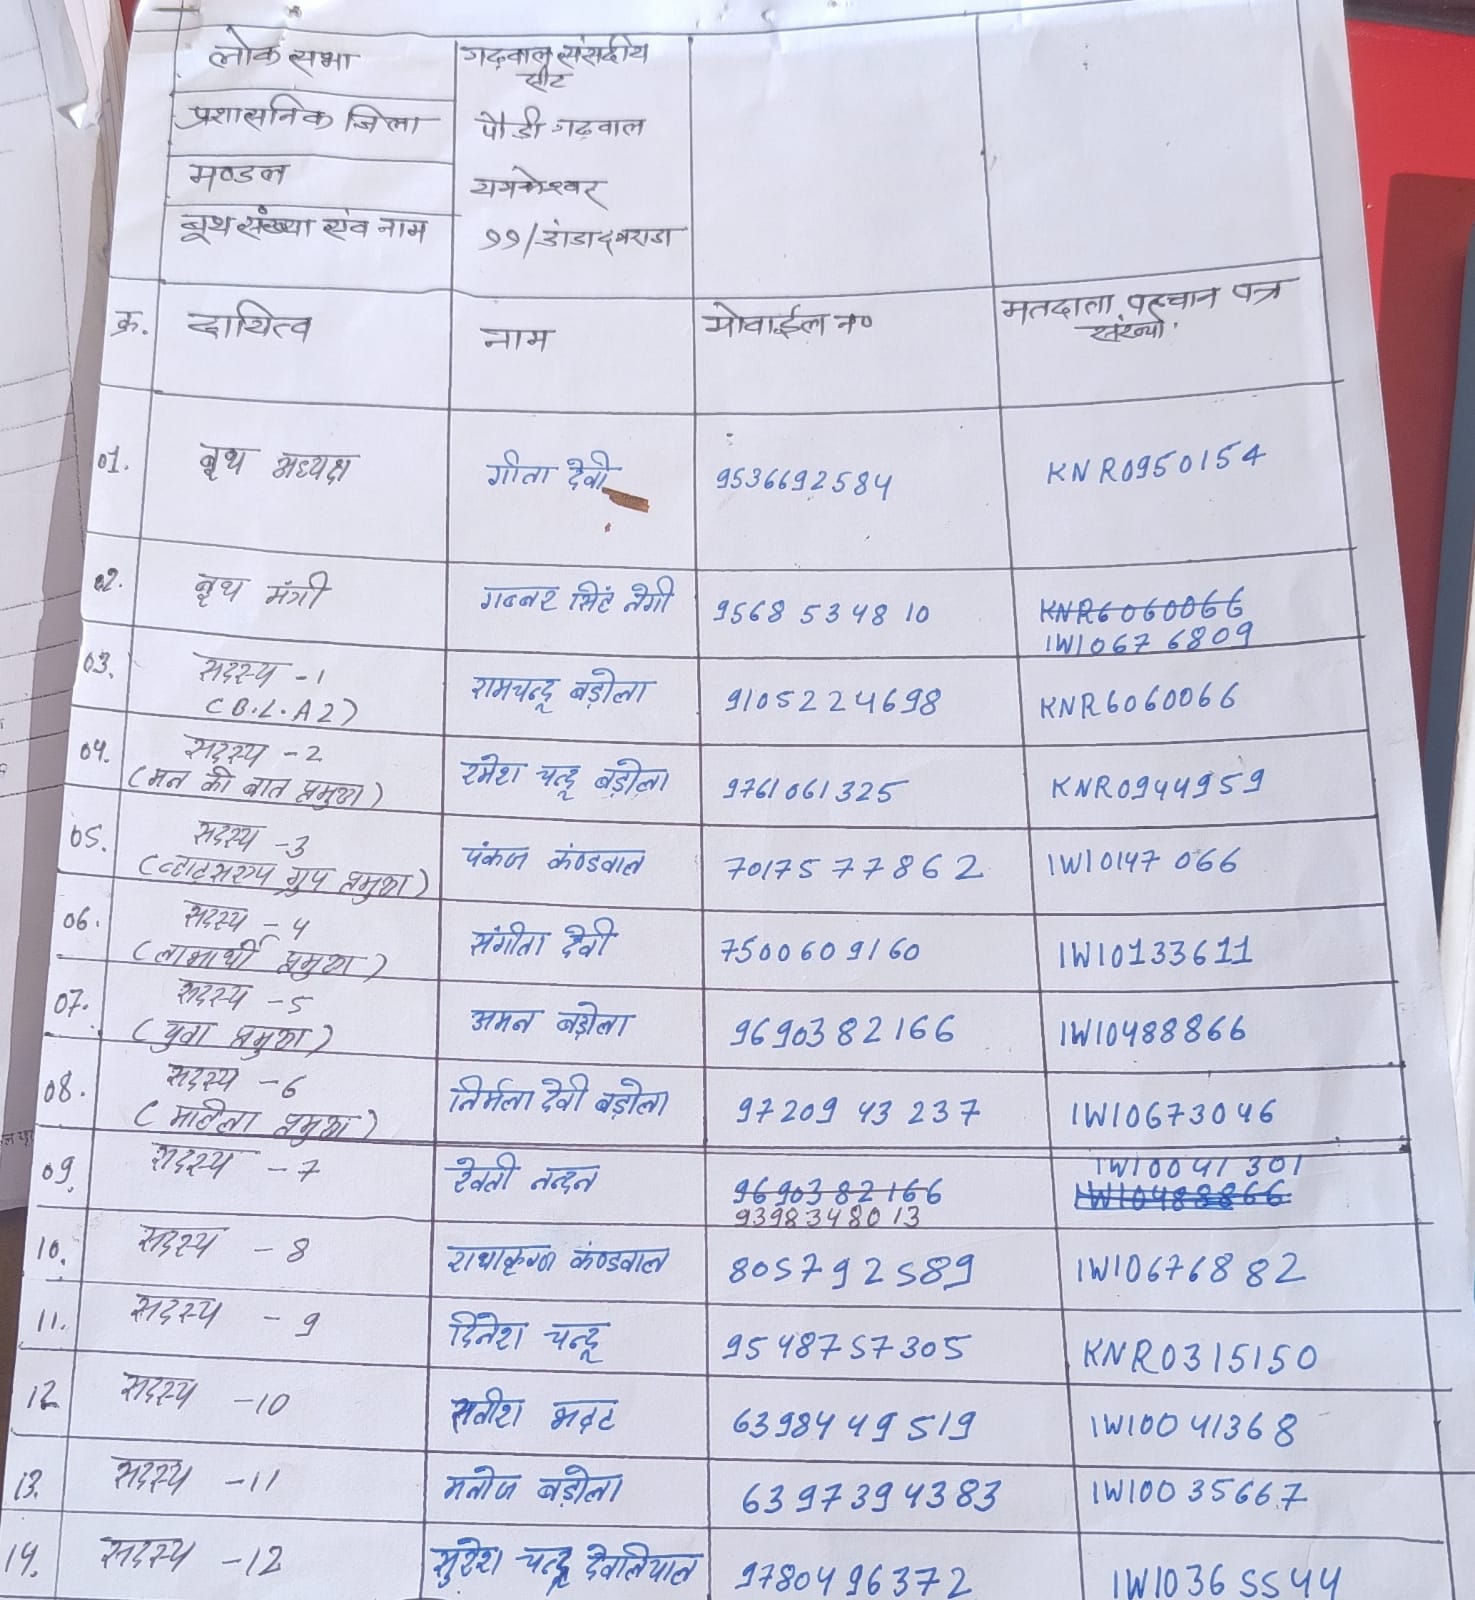 लोक सभा गढ़वाल संसदीय सीट
प्रशासनिक जिला पौडी गढ़वाल
मण्डल यमकेश्वर
बूथ संख्या एंव नाम ११/डांडादमराडा
क्र. दायित्व नाम मोबाईल न० मतदाता पहचान पत्र संख्या
01. बूथ अध्यक्ष गीता देवी 9536692584 KNR0950154
02. बूथ मंत्री गब्बर सिंह नेगी 9568534810 KNR6060066
IWI0676809
03. सदस्य -1 रामचन्द्र बड़ोला 9105224698 KNR6060066
(B.L.A2)
04. सदस्य -2 रमेश चन्द्र बड़ोला 9761061325 KNR0944959
(मन की बात प्रमुख)
05. सदस्य -3 पंकज कंण्डवाल 7017577862 IWI0147066
(व्हाट्सएप ग्रुप प्रमुख)
06. सदस्य -4 संगीता देवी 7500609160 IWI0133611
(लाभार्थी प्रमुख)
07. सदस्य -5 अमन बड़ोला 9690382166 IWI0488866
(युवा प्रमुख)
08. सदस्य -6 निर्मला देवी बड़ोला 9720943237 IWI0673046
(महिला प्रमुख)
09. सदस्य -7 रेवती नन्दन 9690382166 IWI0041301
9398348013 IWI0488866
10. सदस्य -8 राधाकृष्ण कंण्डवाल 805792589 IWI0676882
11. सदस्य -9 दिनेश चन्द्र 9548757305 KNR0315150
12 सदस्य -10 सतीश भट्ट 6398449519 IWI0041368
13. सदस्य -11 मनोज बड़ोला 6397394383 IWI0035667
14. सदस्य -12 सुरेश चन्द्र देवलियाल 9780496372 IWI0365544